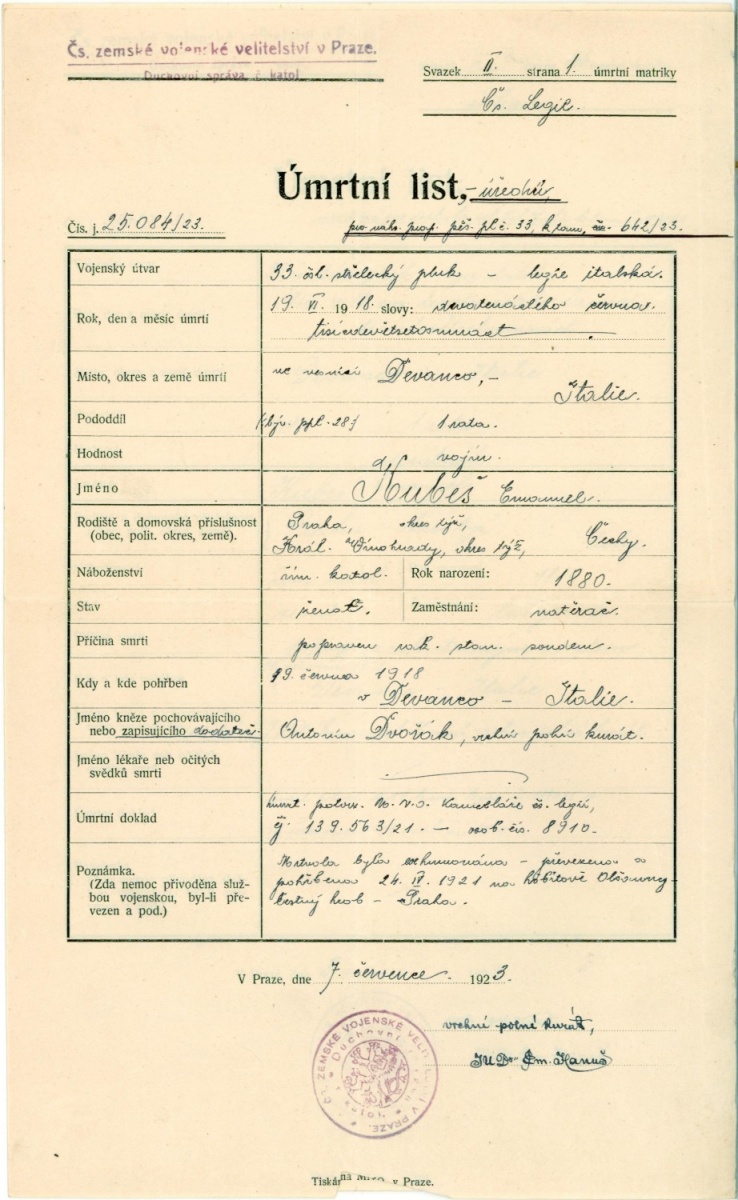 Čs. zemské vojenské velitelství v Praze.
Duchovní správa č. katol.
Svazek II. strana 1. úmrtní matriky
Čs. Legie.
Úmrtní list, - úřední,
Čís. j. 25.084/23.
pro náhr. prap. pěš. pl. č. 33, k zám, čís. 642/23.
Vojenský útvar 33. čsl. střelecký pluk – legie italská.
Rok, den a měsíc úmrtí 19. VI. 1918. slovy: devatenáctého června
tisícdevětsetosmnáct
Místo, okres a země úmrtí ve vesnici Devanco, - Italie.
Pododdíl (býv. ppl. 28.) 1 rota.
Hodnost vojín.
Jméno Kubeš Emanuel.
Rodiště a domovská příslušnost (obec, polit. okres, země). Praha, okres týž,
Král. Vinohrady, okres týž, Čechy.
Náboženství řím. katol. Rok narození: 1880.
Stav ženat. Zaměstnání: natěrač.
Příčina smrti popraven rak. stan. soudem.
Kdy a kde pohřben 19. června 1918
v Devanco – Italie.
Jméno kněze pochovávajícího
nebo zapisujícího dodateč. Antonín Dvořák, vrchní polní kurát.
Jméno lékaře neb očitých
svědků smrti
Úmrtní doklad úmrt. potvrz. M. N. O. Kanceláře čs. legií,
čj. 139.563/21. – osob. čís. 8910.
Poznámka.
(Zda nemoc přivoděna služ-
bou vojenskou, byl-li pře-
vezen a pod.)
Mrtvola byla exhumována – převezena a
pohřbena 24. IV. 1921 na hřbitově Olšanny-
čestný hrob – Praha.
V Praze, dne 7. července 1923.
vrchní polní kurát,
JUDr Em. Hanuš
ČS. ZEMSKÉ VOJENSKÉ VELITELSTVÍ V PRAZE.
Duchovní
v Praze.